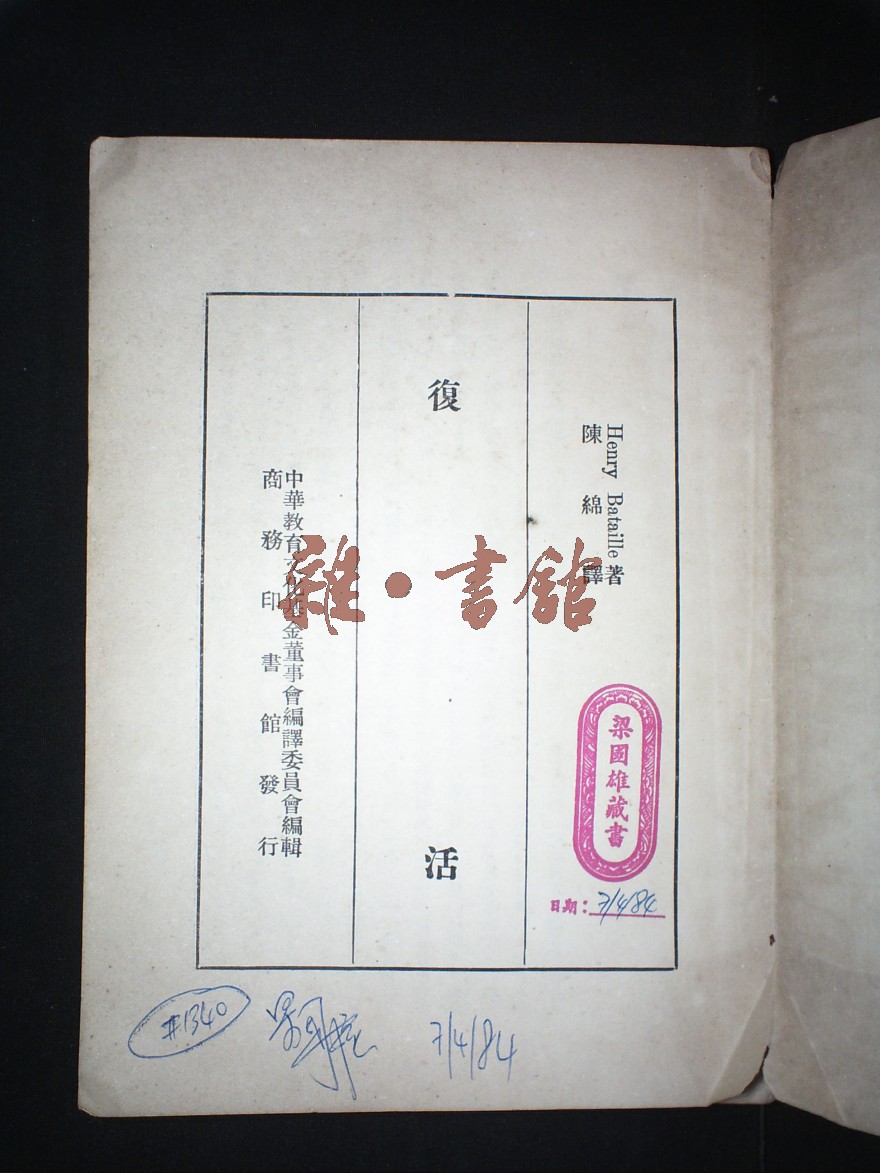 Henry Bataille 著
陳綿譯
復活
中華教育文化基金董事會編譯委員會編輯
商務印書館發行
雜·書館
梁國雄藏書
日期：7/4/84
#1340
梁國雄
7/4/84